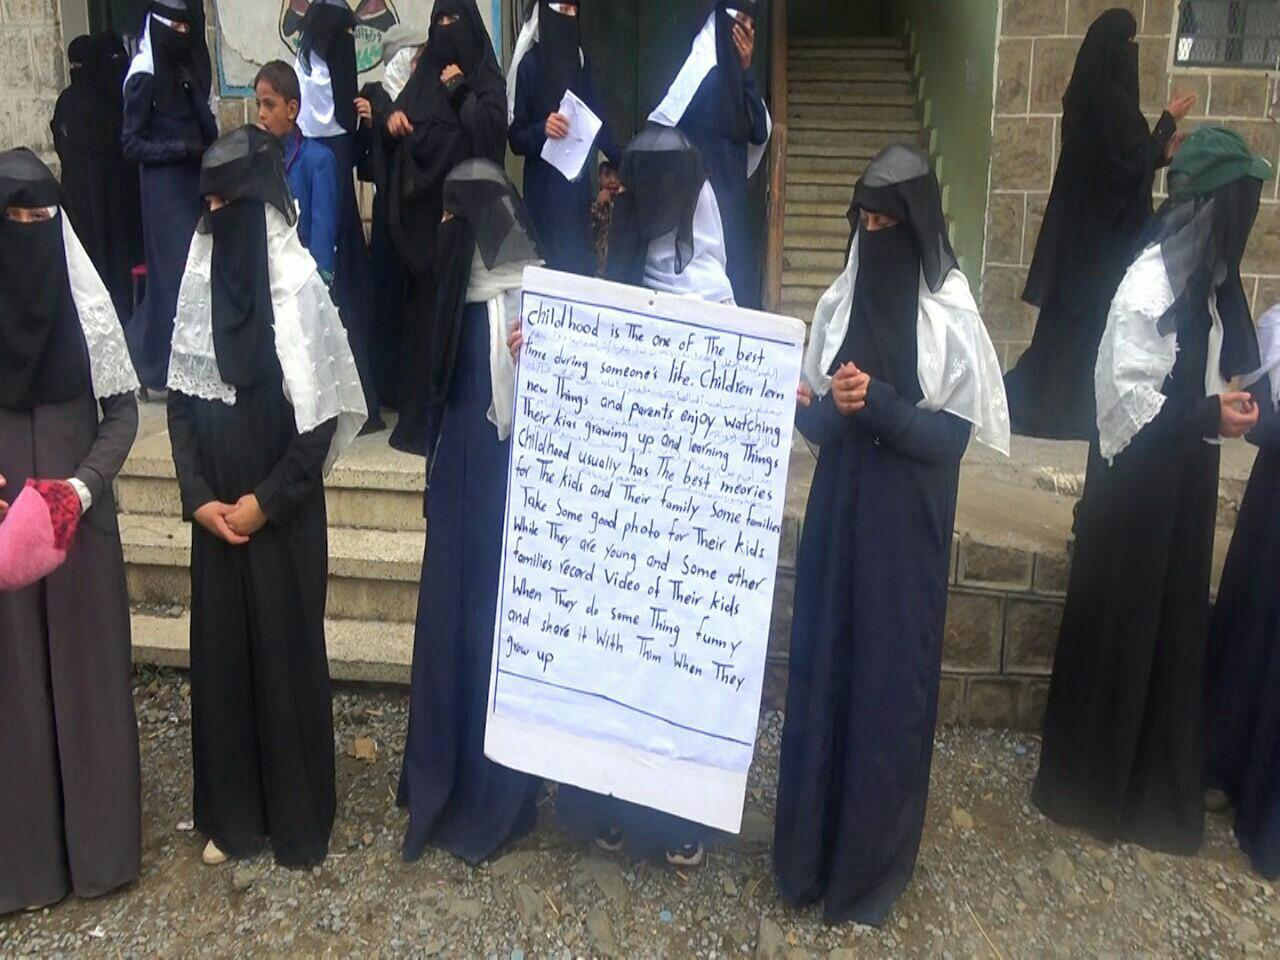 childhood is The one of The best
time during someone's life. Children lern
new Things and parents enjoy watching
Their kias grawing up and learning Things
Childhood usually has The best meories
for The kids and Their family Some families
Take Some good photo for Their kids
While They are young and Some other
families record Video of Their kids
When They do some Thing funny
and share it With Thim When They
grow up